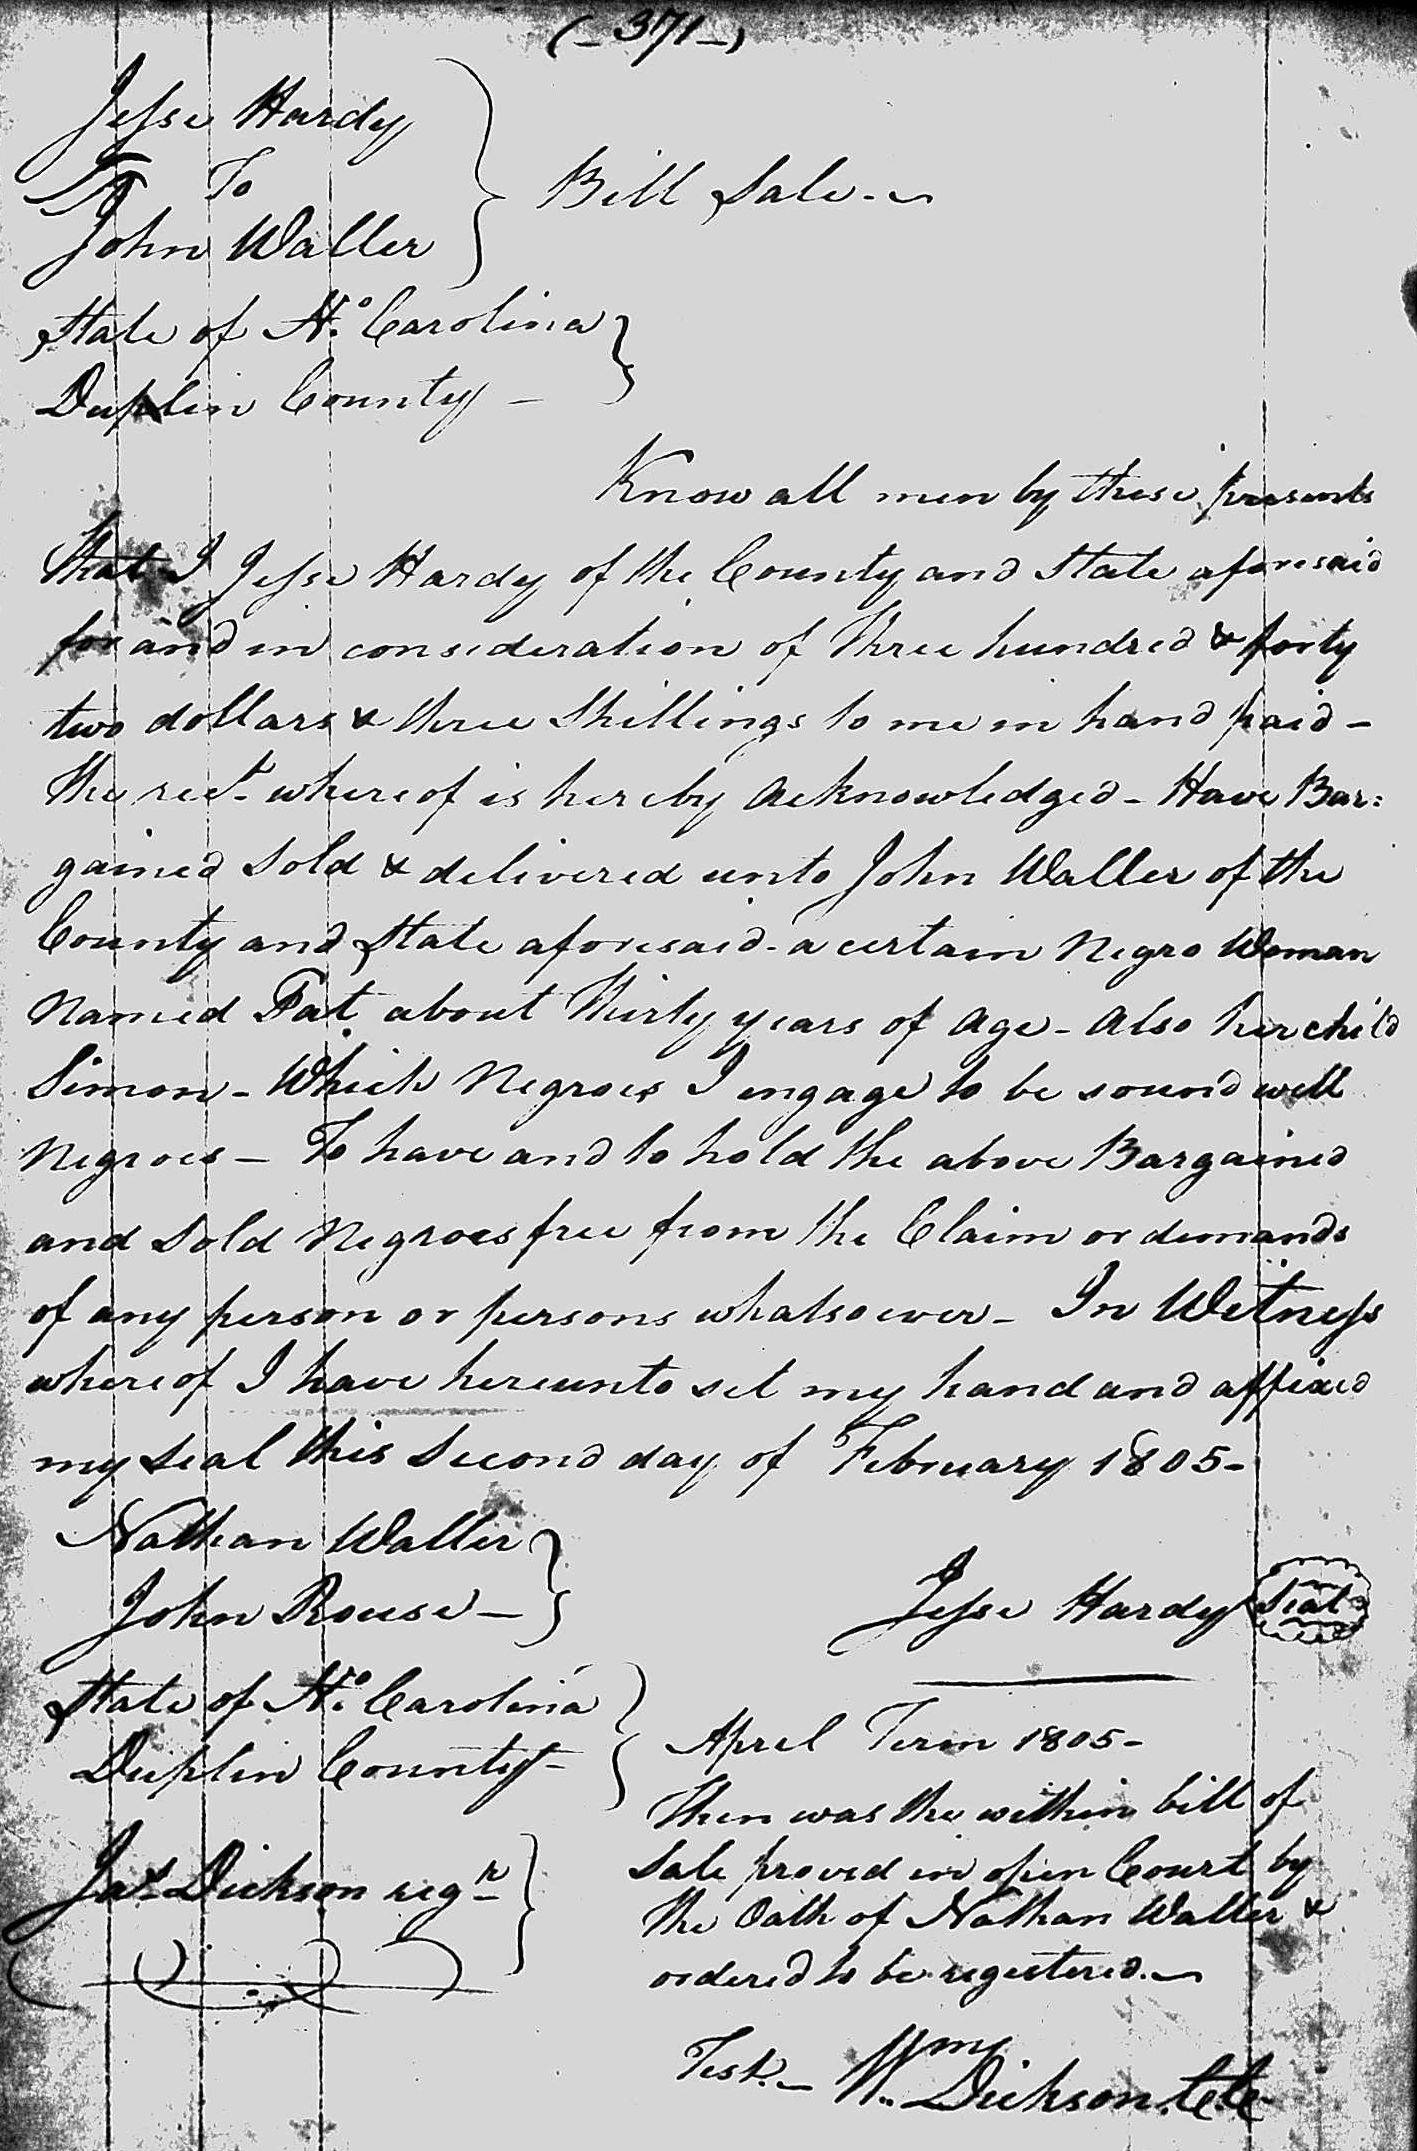 (-371-)
Jesse Hardy
To
John Waller
Bill Sale.
State of No. Carolina
Duplin County -
Know all men by these presents
that I Jesse Hardy of the County and State aforesaid
for and in consideration of three hundred & forty
two dollars & three Shillings to me in hand paid -
the rect. whereof is hereby acknowledged - Have Bar:
gained Sold & delivered unto John Waller of the
County and State aforesaid - a certain Negro Woman
Named Pat about thirty years of age - also her child
Simon - Which Negroes I engage to be sound well
Negroes - To have and to hold the above Bargained
and Sold Negroes free from the Claim or demands
of any person or persons whatsoever - In Witness
whereof I have hereunto set my hand and affixed
my Seal this Second day of February 1805 -
Nathan Waller
John Rouse -
Jesse Hardy Seal
State of No. Carolina
Duplin County -
April Term 1805 -
Then was the within bill of
Sale proved in open Court by
the Oath of Nathan Waller &
ordered to be registered. -
Jas. Dickson regr.
Test. - Wm. Dickson. C.C.